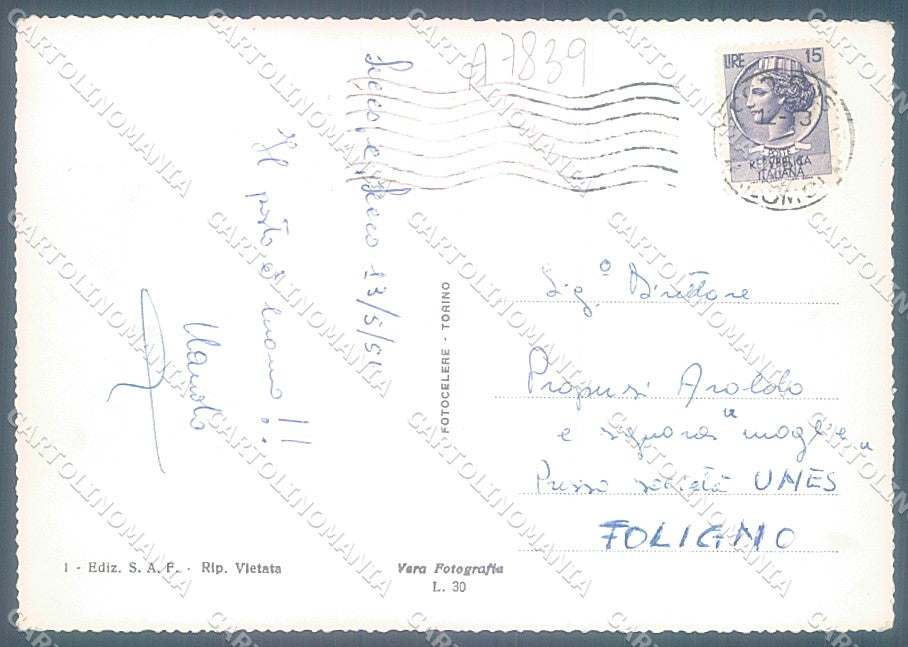 A7839
LIRE 15
POSTE
REPVBBLICA
ITALIANA
13/5/5
Il posto è buono!!
FOTOCELERE - TORINO
Sig.º Direttore
Propersi Aroldo
e signora "moglie"
Presso società UNES
FOLIGNO
1 - Ediz. S. A. F. - Rip. Vietata
Vera Fotografia
L. 30
CARTOLINOMANIA